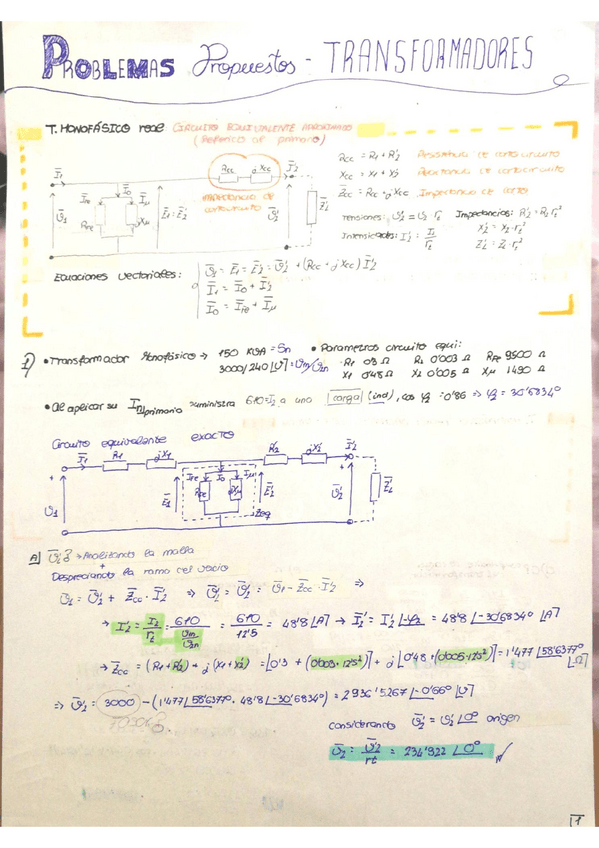 PROBLEMAS Propuestos - TRANSFORMADORES
T. MONOFÁSICO real CIRCUITO EQUIVALENTE APROXIMADO
(Referido al primario)
Rcc = R1 + R'2 Resistencia de cortocircuito
Xcc = X1 + X'2 Reactancia de cortocircuito
Z̅cc = Rcc + jXcc Impedancia de corto
Tensiones: U'2 = U2·rt Impedancias: R'2 = R2·rt²
Intensidades: I'2 = I2/rt X'2 = X2·rt²
Z'L = ZL·rt²
I̅1 Rcc jXcc I̅'2
I̅0
IFe I̅μ
RFe Xμ
U̅1 E̅1=E̅'2 U̅'2 Z̅'L
IMPEDANCIA DE
CORTOCIRCUITO
Ecuaciones vectoriales:
U̅1 = E̅1 = E̅'2 = U̅'2 + (Rcc + jXcc) I̅'2
I̅1 = I̅0 + I̅'2
I̅0 = I̅Fe + I̅μ
1) • Transformador Monofásico → 150 KVA = Sn • Parametros circuito equi:
3000/240 [V] = U1n/U2n R1 0'3 Ω R2 0'003 Ω RFe 9500 Ω
X1 0'48 Ω X2 0'005 Ω Xμ 1490 Ω
• Al aplicar su primario suministra 610=I2 a una carga (ind), cos φ2 = 0'86 ⇒ φ2 = 30'6834º
Circuito equivalente EXACTO
I̅1 R1 jX1 R'2 jX'2 I̅'2
IFe I0 Iμ
U̅1 E̅1 RFe jXμ E̅'2 U̅'2 Z̅'L
Zeq
A) U̅2? → Analizando la malla
Despreciando la rama del vacio
U̅1 = U̅'2 + Z̅cc · I̅'2 ⇒ U̅'2 = U̅1 - Z̅cc · I̅'2 ⇒
→ I'2 = I2/rt = 610/(U1n/U2n) = 610/12'5 = 48'8 [A] → I̅'2 = I'2 ∠-φ2 = 48'8 ∠-30'6834º [A]
→ Z̅cc = (R1+R'2) + j(X1+X'2) = [0'3 + (0'003·12'5²)] + j[0'48 + (0'005·12'5²)] = 1'477 ∠58'6377º [Ω]
⇒ U̅'2 = 3000 - (1'477 ∠58'6377º · 48'8 ∠-30'6834º) = 2936'5267 ∠-0'66º [V]
considerando U̅'2 = U'2 ∠0º origen
U̅2 = U̅'2/rt = 234'922 ∠0º
1